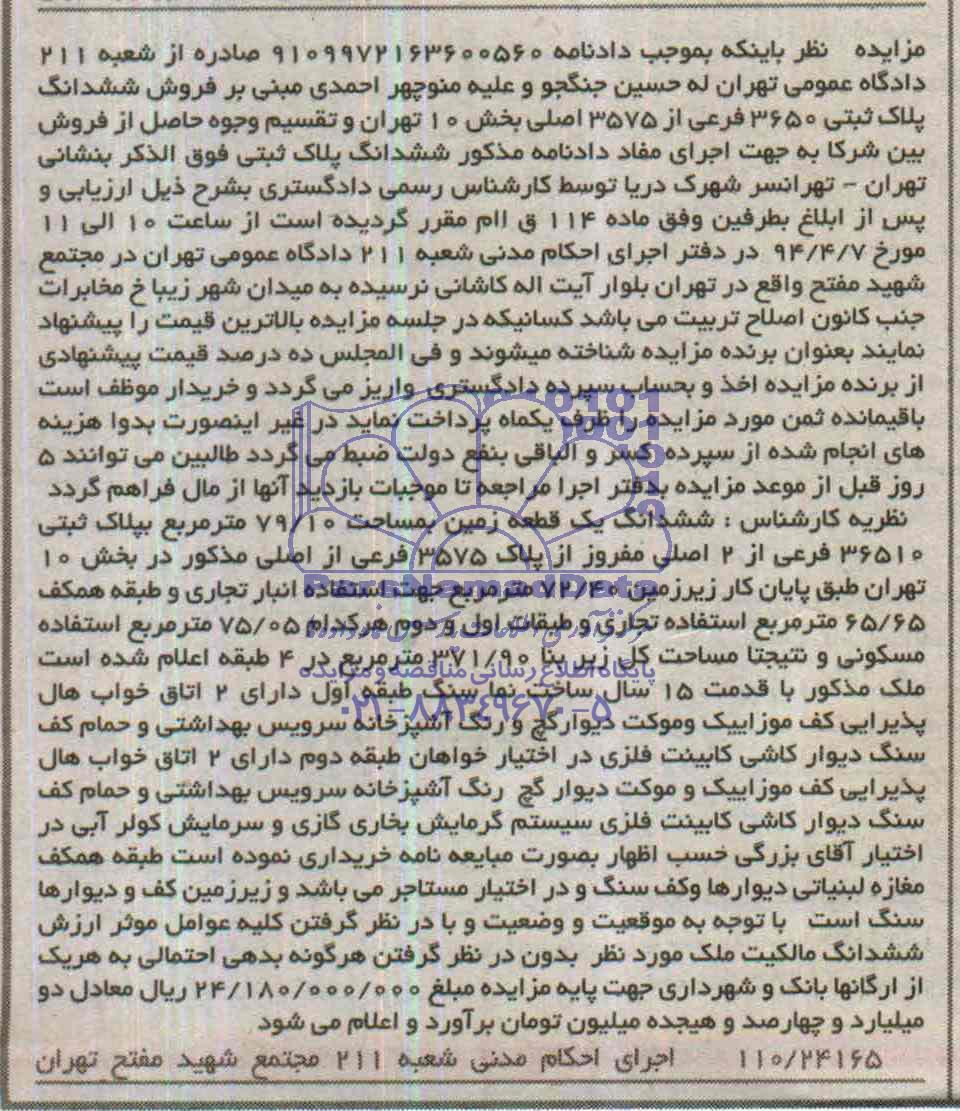 مزایده نظر باینکه بموجب دادنامه ۹۱۰۹۹۷۲۱۶۳۶۰۰۵۶۰ صادره از شعبه ۲۱۱
دادگاه عمومی تهران له حسین جنگجو و علیه منوچهر احمدی مبنی بر فروش ششدانگ
پلاک ثبتی ۳۶۵۰ فرعی از ۳۵۷۵ اصلی بخش ۱۰ تهران و تقسیم وجوه حاصل از فروش
بین شرکا به جهت اجرای مفاد دادنامه مذکور ششدانگ پلاک ثبتی فوق الذکر بنشانی
تهران - تهرانسر شهرک دریا توسط کارشناس رسمی دادگستری بشرح ذیل ارزیابی و
پس از ابلاغ بطرفین وفق ماده ۱۱۴ ق اام مقرر گردیده است از ساعت ۱۰ الی ۱۱
مورخ ۹۴/۴/۷ در دفتر اجرای احکام مدنی شعبه ۲۱۱ دادگاه عمومی تهران در مجتمع
شهید مفتح واقع در تهران بلوار آیت اله کاشانی نرسیده به میدان شهر زیبا خ مخابرات
جنب کانون اصلاح تربیت می باشد کسانیکه در جلسه مزایده بالاترین قیمت را پیشنهاد
نمایند بعنوان برنده مزایده شناخته میشوند و فی المجلس ده درصد قیمت پیشنهادی
از برنده مزایده اخذ و بحساب سپرده دادگستری واریز می گردد و خریدار موظف است
باقیمانده ثمن مورد مزایده را ظرف یکماه پرداخت نماید در غیر اینصورت بدوا هزینه
های انجام شده از سپرده کسر و الباقی بنفع دولت ضبط می گردد طالبین می توانند ۵
روز قبل از موعد مزایده بدفتر اجرا مراجعه تا موجبات بازدید آنها از مال فراهم گردد
نظریه کارشناس : ششدانگ یک قطعه زمین بمساحت ۷۹/۱۰ مترمربع بپلاک ثبتی
۳۶۵۱۰ فرعی از ۲ اصلی مفروز از پلاک ۳۵۷۵ فرعی از اصلی مذکور در بخش ۱۰
تهران طبق پایان کار زیرزمین ۷۲/۴۰ مترمربع جهت استفاده انبار تجاری و طبقه همکف
۶۵/۶۵ مترمربع استفاده تجاری و طبقات اول و دوم هرکدام ۷۵/۰۵ مترمربع استفاده
مسکونی و نتیجتا مساحت کل زیر بنا ۳۷۱/۹۰ مترمربع در ۴ طبقه اعلام شده است
ملک مذکور با قدمت ۱۵ سال ساخت نما سنگ طبقه اول دارای ۲ اتاق خواب هال
پذیرایی کف موزاییک وموکت دیوارگچ و رنگ آشپزخانه سرویس بهداشتی و حمام کف
سنگ دیوار کاشی کابینت فلزی در اختیار خواهان طبقه دوم دارای ۲ اتاق خواب هال
پذیرایی کف موزاییک و موکت دیوار گچ رنگ آشپزخانه سرویس بهداشتی و حمام کف
سنگ دیوار کاشی کابینت فلزی سیستم گرمایش بخاری گازی و سرمایش کولر آبی در
اختیار آقای بزرگی خسب اظهار بصورت مبایعه نامه خریداری نموده است طبقه همکف
مغازه لبنیاتی دیوارها وکف سنگ و در اختیار مستاجر می باشد و زیرزمین کف و دیوارها
سنگ است با توجه به موقعیت و وضعیت و با در نظر گرفتن کلیه عوامل موثر ارزش
ششدانگ مالکیت ملک مورد نظر بدون در نظر گرفتن هرگونه بدهی احتمالی به هریک
از ارگانها بانک و شهرداری جهت پایه مزایده مبلغ ۲۴/۱۸۰/۰۰۰/۰۰۰ ریال معادل دو
میلیارد و چهارصد و هیجده میلیون تومان برآورد و اعلام می شود
۱۱۰/۲۴۱۶۵ اجرای احکام مدنی شعبه ۲۱۱ مجتمع شهید مفتح تهران
ParsNamadData
پایگاه اطلاع رسانی مناقصه و مزایده
۰۲۱-۸۸۳۴۹۶۷۰-۵